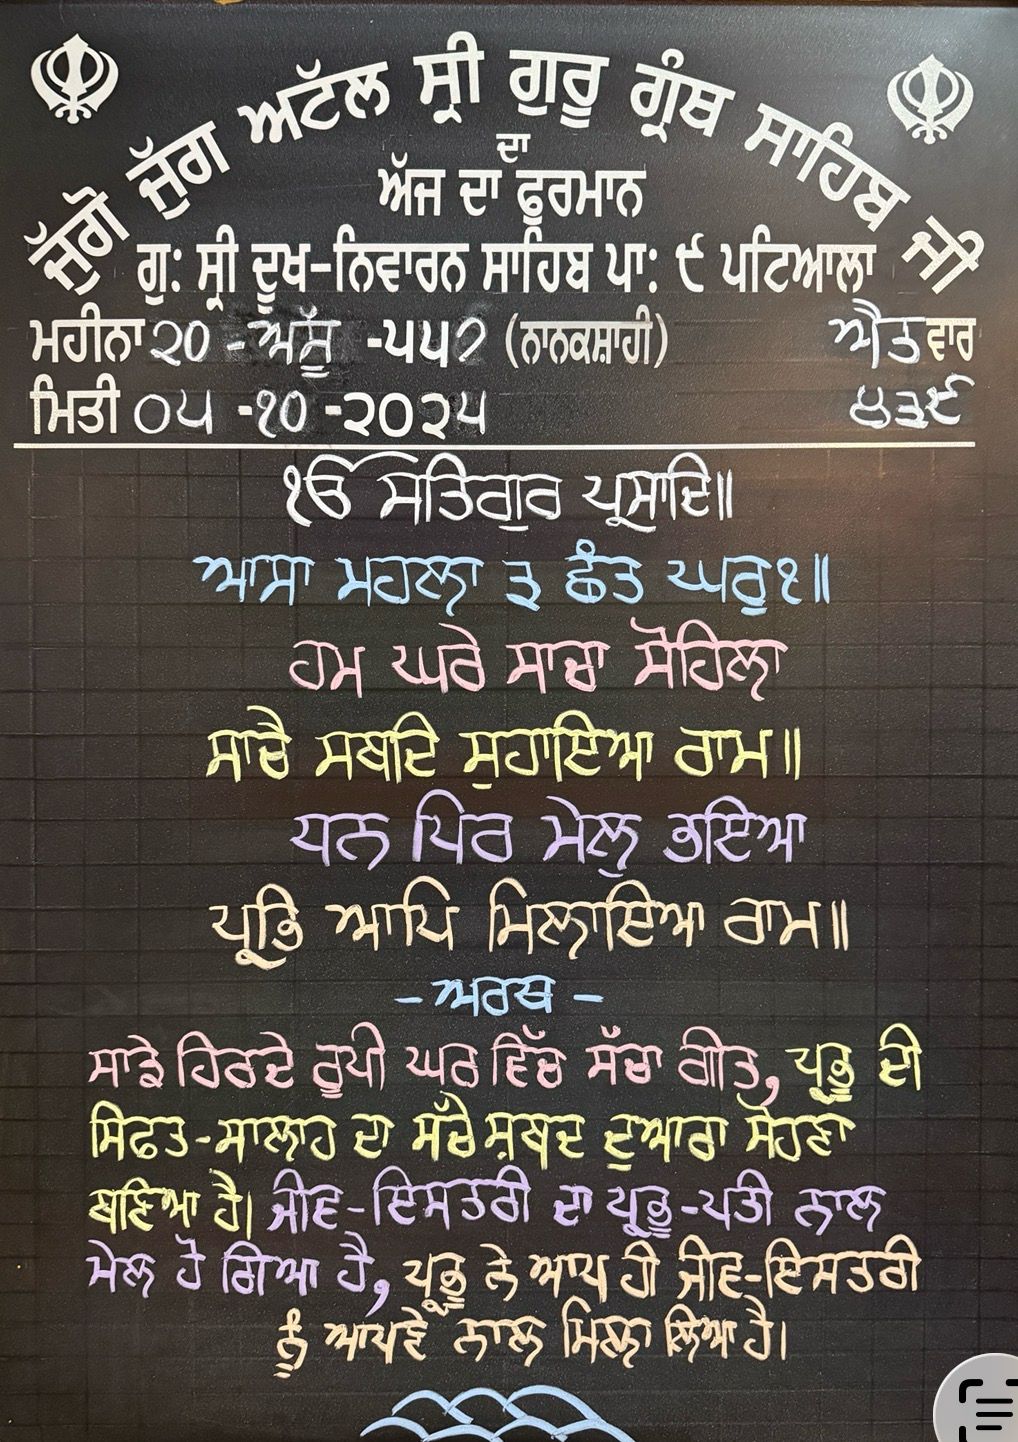 ਜੁੱਗੋ ਜੁੱਗ ਅਟੱਲ ਸ੍ਰੀ ਗੁਰੂ ਗ੍ਰੰਥ ਸਾਹਿਬ ਜੀ
ਦਾ
ਅੱਜ ਦਾ ਫੁਰਮਾਨ
ਗੁ: ਸ੍ਰੀ ਦੂਖ-ਨਿਵਾਰਨ ਸਾਹਿਬ ਪਾ: ੯ ਪਟਿਆਲਾ
ਮਹੀਨਾ ੨੦ - ਅੱਸੂ -੫੫੭ (ਨਾਨਕਸ਼ਾਹੀ) ਐਤਵਾਰ
ਮਿਤੀ ੦੫ -੧੦ -੨੦੨੫ ੪੩੯
ੴ ਸਤਿਗੁਰ ਪ੍ਰਸਾਦਿ॥
ਆਸਾ ਮਹਲਾ ੩ ਛੰਤ ਘਰੁ ੧॥
ਹਮ ਘਰੇ ਸਾਚਾ ਸੋਹਿਲਾ
ਸਾਚੈ ਸਬਦਿ ਸੁਹਾਇਆ ਰਾਮ॥
ਧਨ ਪਿਰ ਮੇਲੁ ਭਇਆ
ਪ੍ਰਭਿ ਆਪਿ ਮਿਲਾਇਆ ਰਾਮ॥
- ਅਰਥ -
ਸਾਡੇ ਹਿਰਦੇ ਰੂਪੀ ਘਰ ਵਿੱਚ ਸੱਚਾ ਗੀਤ, ਪ੍ਰਭੂ ਦੀ
ਸਿਫਤ-ਸਾਲਾਹ ਦਾ ਸੱਚੇ ਸ਼ਬਦ ਦੁਆਰਾ ਸੋਹਣਾ
ਬਣਿਆ ਹੈ। ਜੀਵ-ਇਸਤਰੀ ਦਾ ਪ੍ਰਭੂ-ਪਤੀ ਨਾਲ
ਮੇਲ ਹੋ ਗਿਆ ਹੈ, ਪ੍ਰਭੂ ਨੇ ਆਪ ਹੀ ਜੀਵ-ਇਸਤਰੀ
ਨੂੰ ਆਪਣੇ ਨਾਲ ਮਿਲਾ ਲਿਆ ਹੈ।